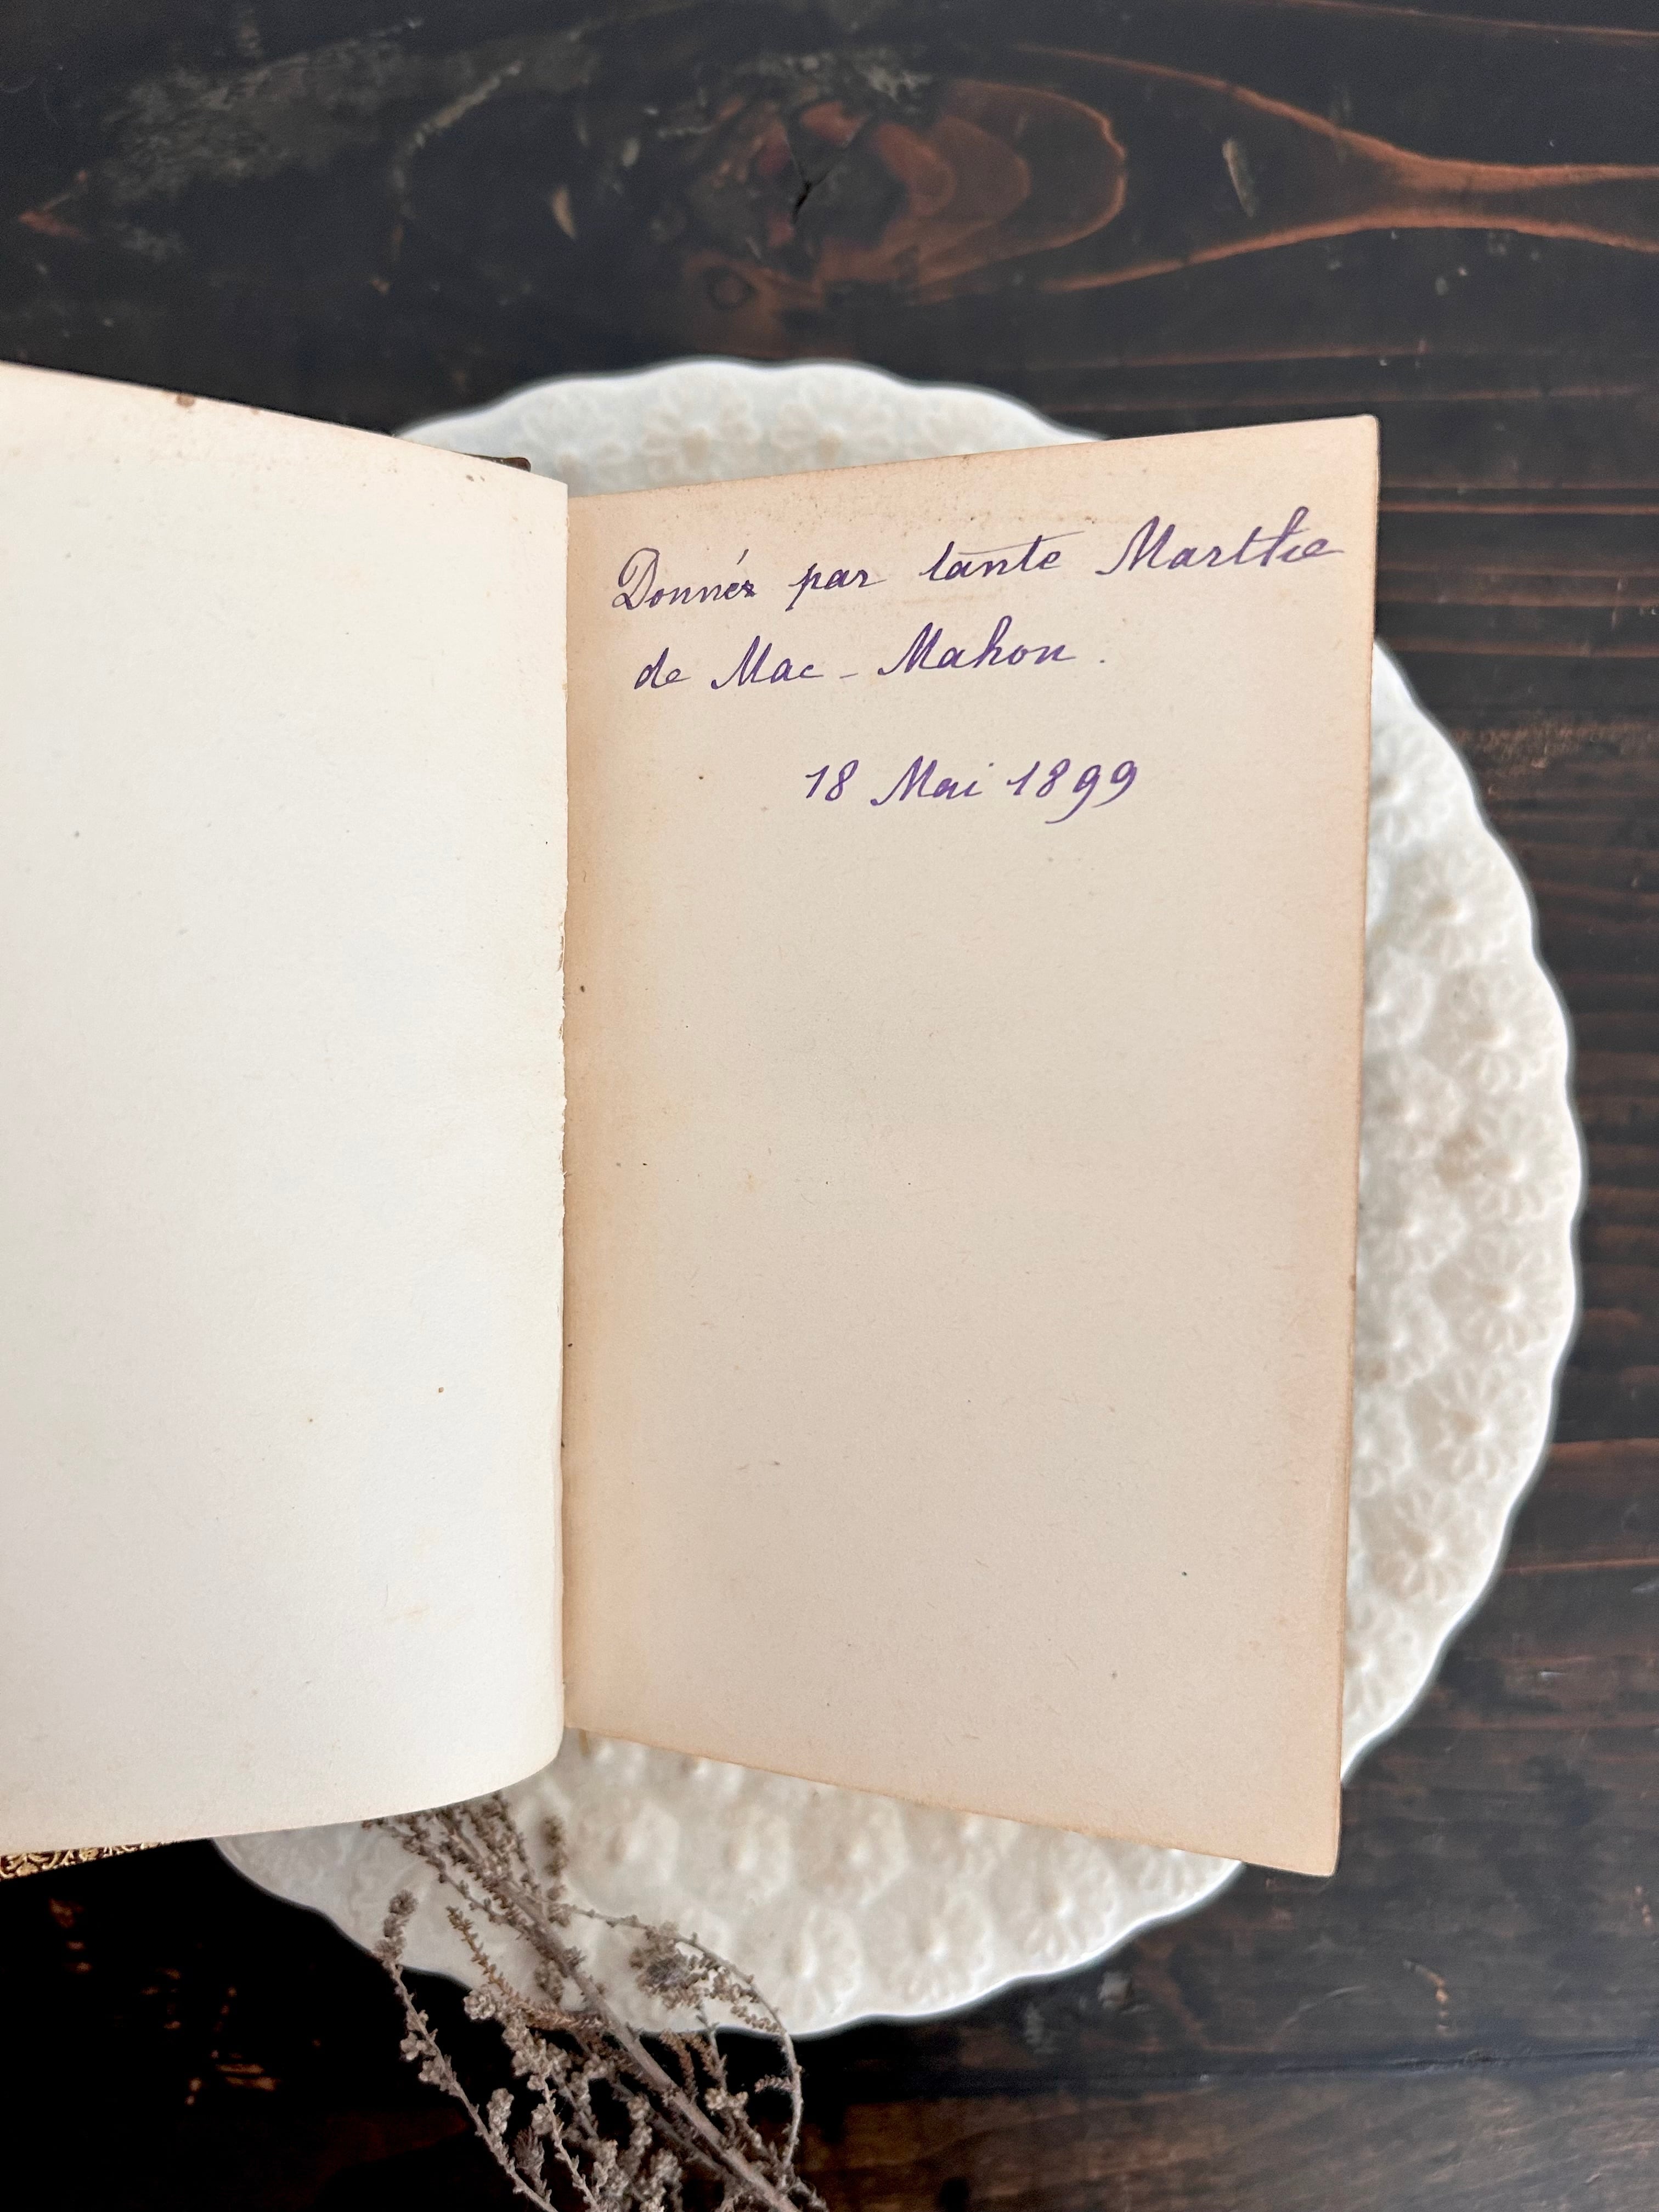 Donnés par tante Marthe
de Mac-Mahon.
18 Mai 1899